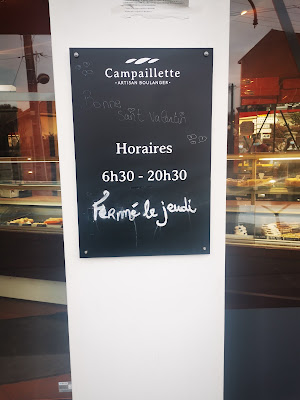 Campaillette
• ARTISAN BOULANGER •
Bonne
Saint Valentin
Horaires
6h30 - 20h30
Fermé le jeudi